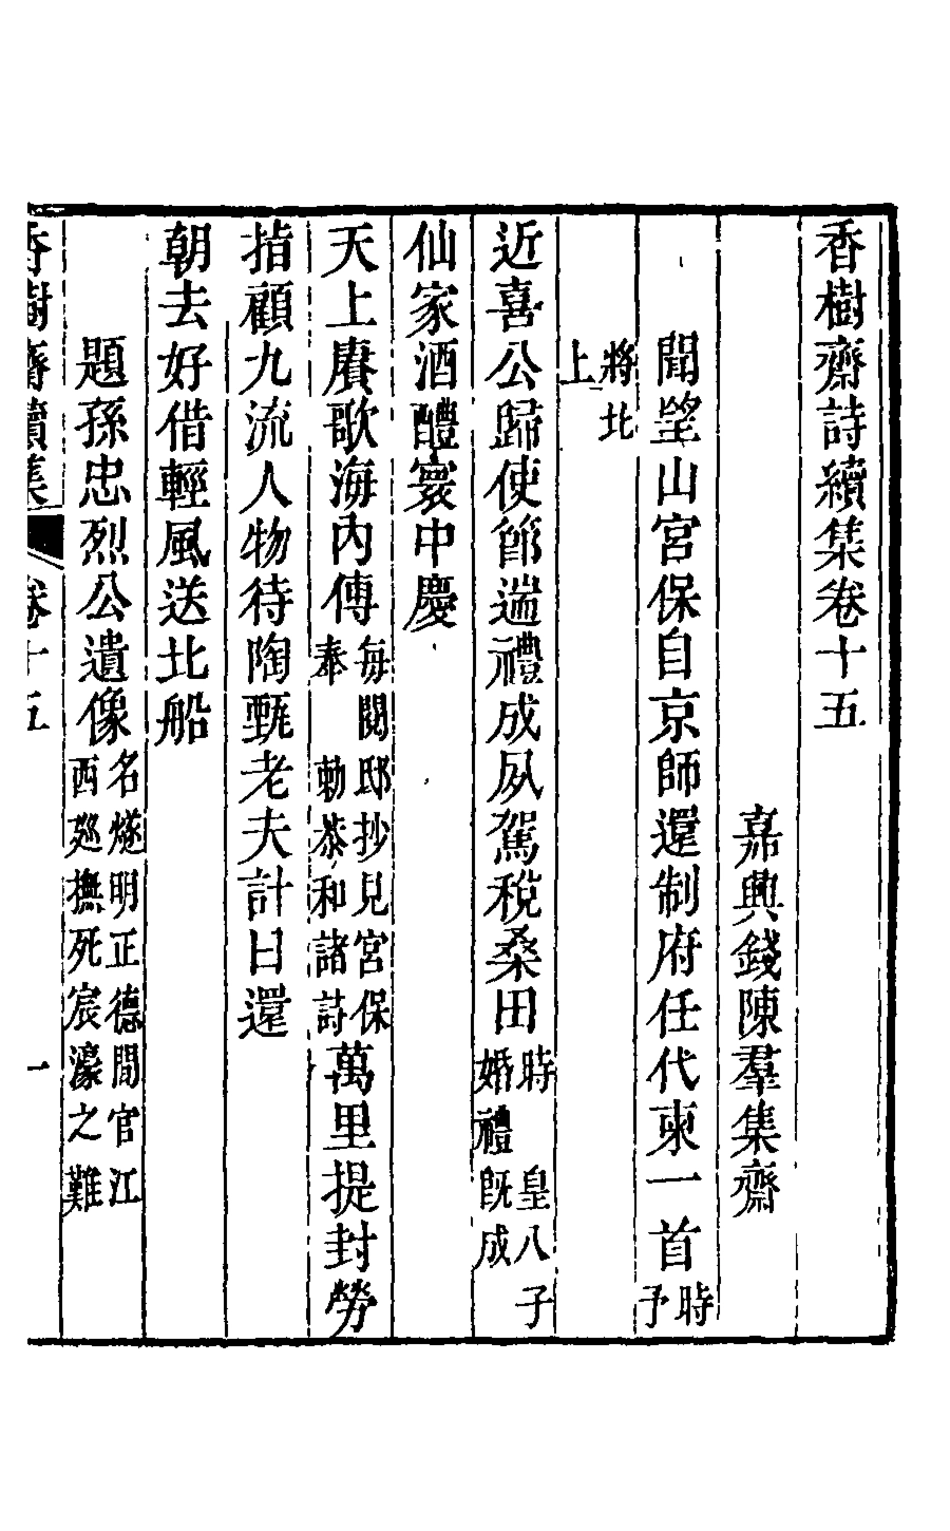 香樹齋詩續集卷十五
嘉興錢陳羣集齋
聞望山宮保自京師還制府任代柬一首時予
將北上
近喜公歸使節遄禮成夙駕稅桑田時皇八子婚禮旣成
仙家酒醴寰中慶
天上賡歌海內傳每閱邸抄見宮保奉勅恭和諸詩萬里提封勞
指顧九流人物待陶甄老夫計日還
朝去好借輕風送北船
題孫忠烈公遺像名燧明正德間官江西廵撫死宸濠之難
香樹齋續集 卷十五 一